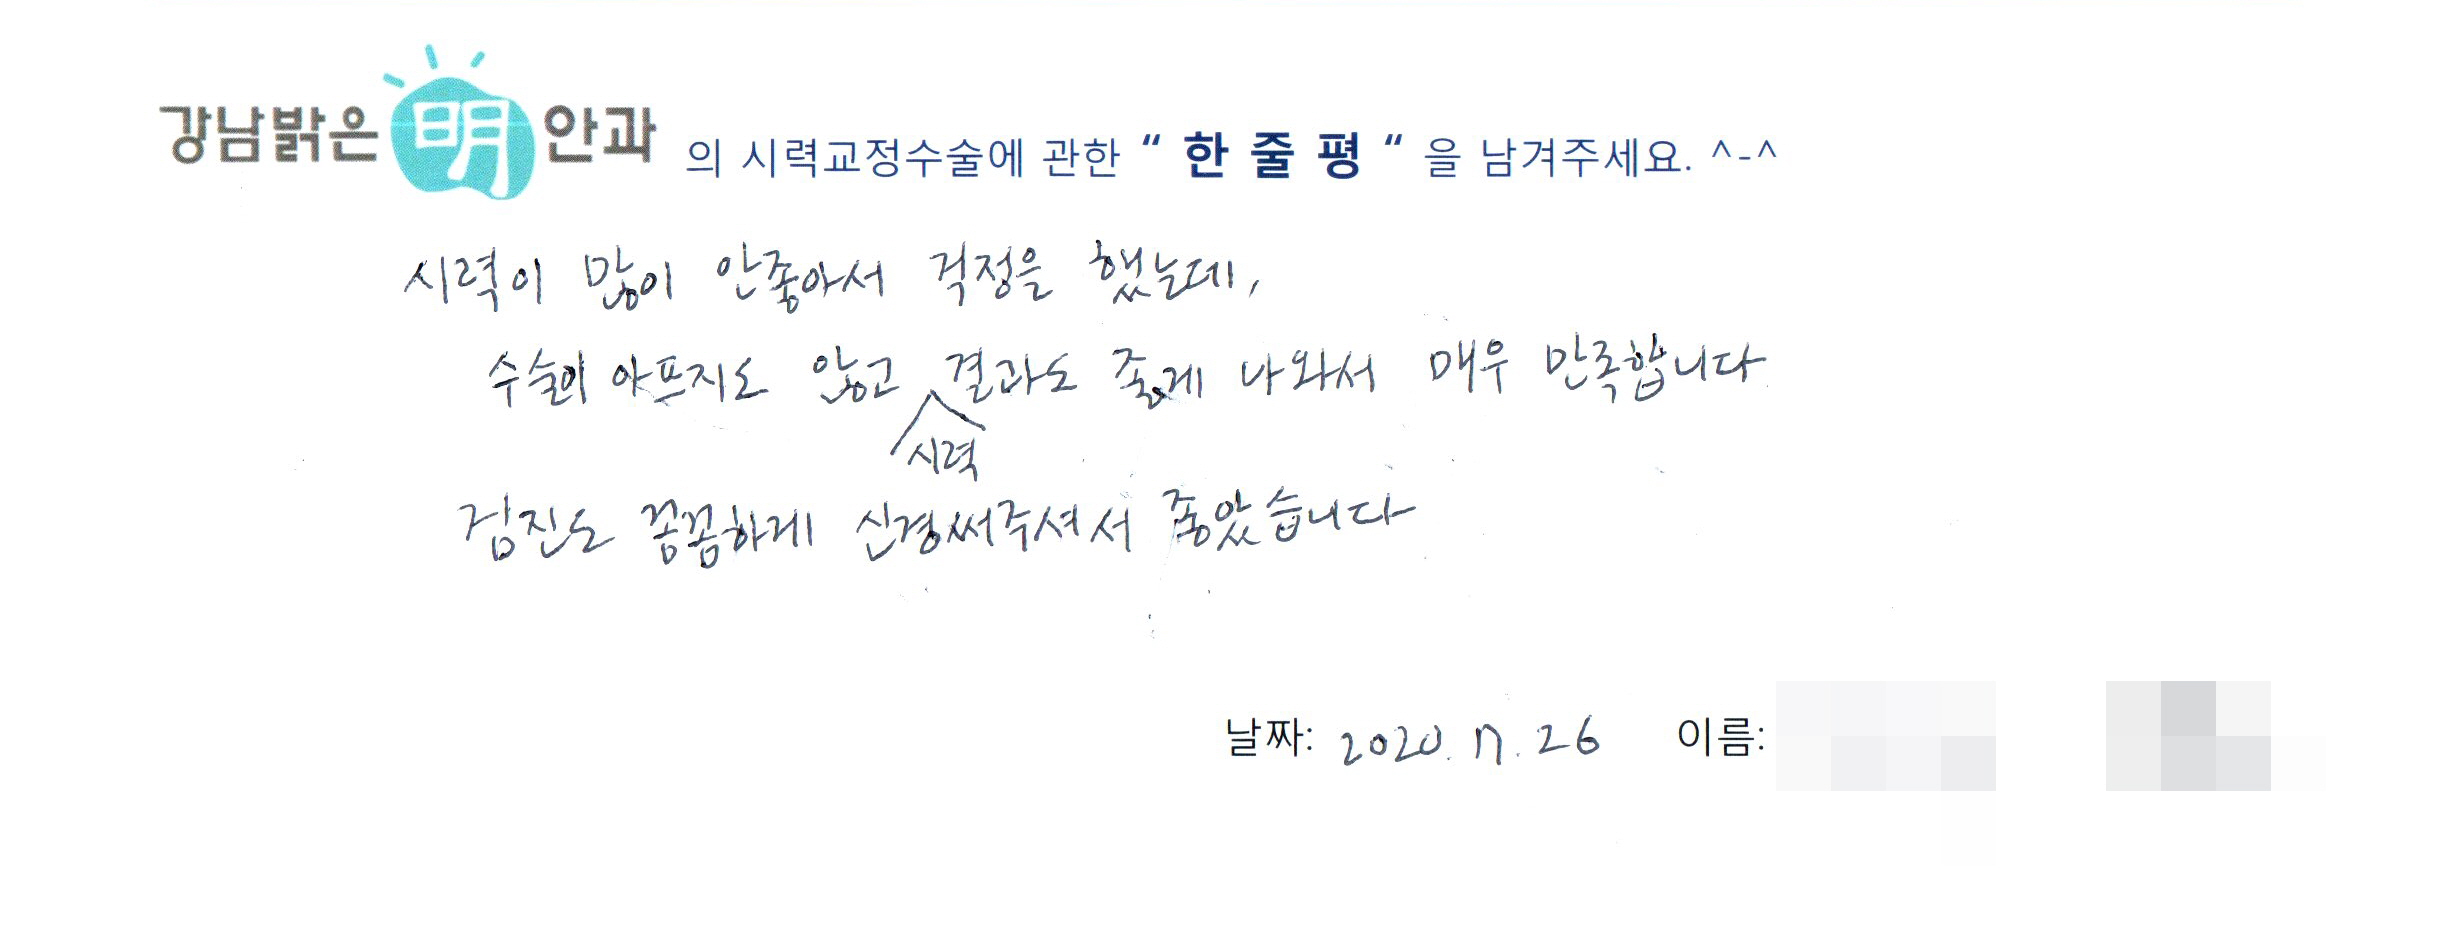 강남밝은明안과 의 시력교정수술에 관한 “ 한 줄 평 “ 을 남겨주세요. ^-^
시력이 많이 안좋아서 걱정을 했는데,
수술이 아프지도 않고 결과도 좋게 나와서 매우 만족합니다
시력
검진도 꼼꼼하게 신경써주셔서 좋았습니다
날짜: 2020. 7. 26 이름: